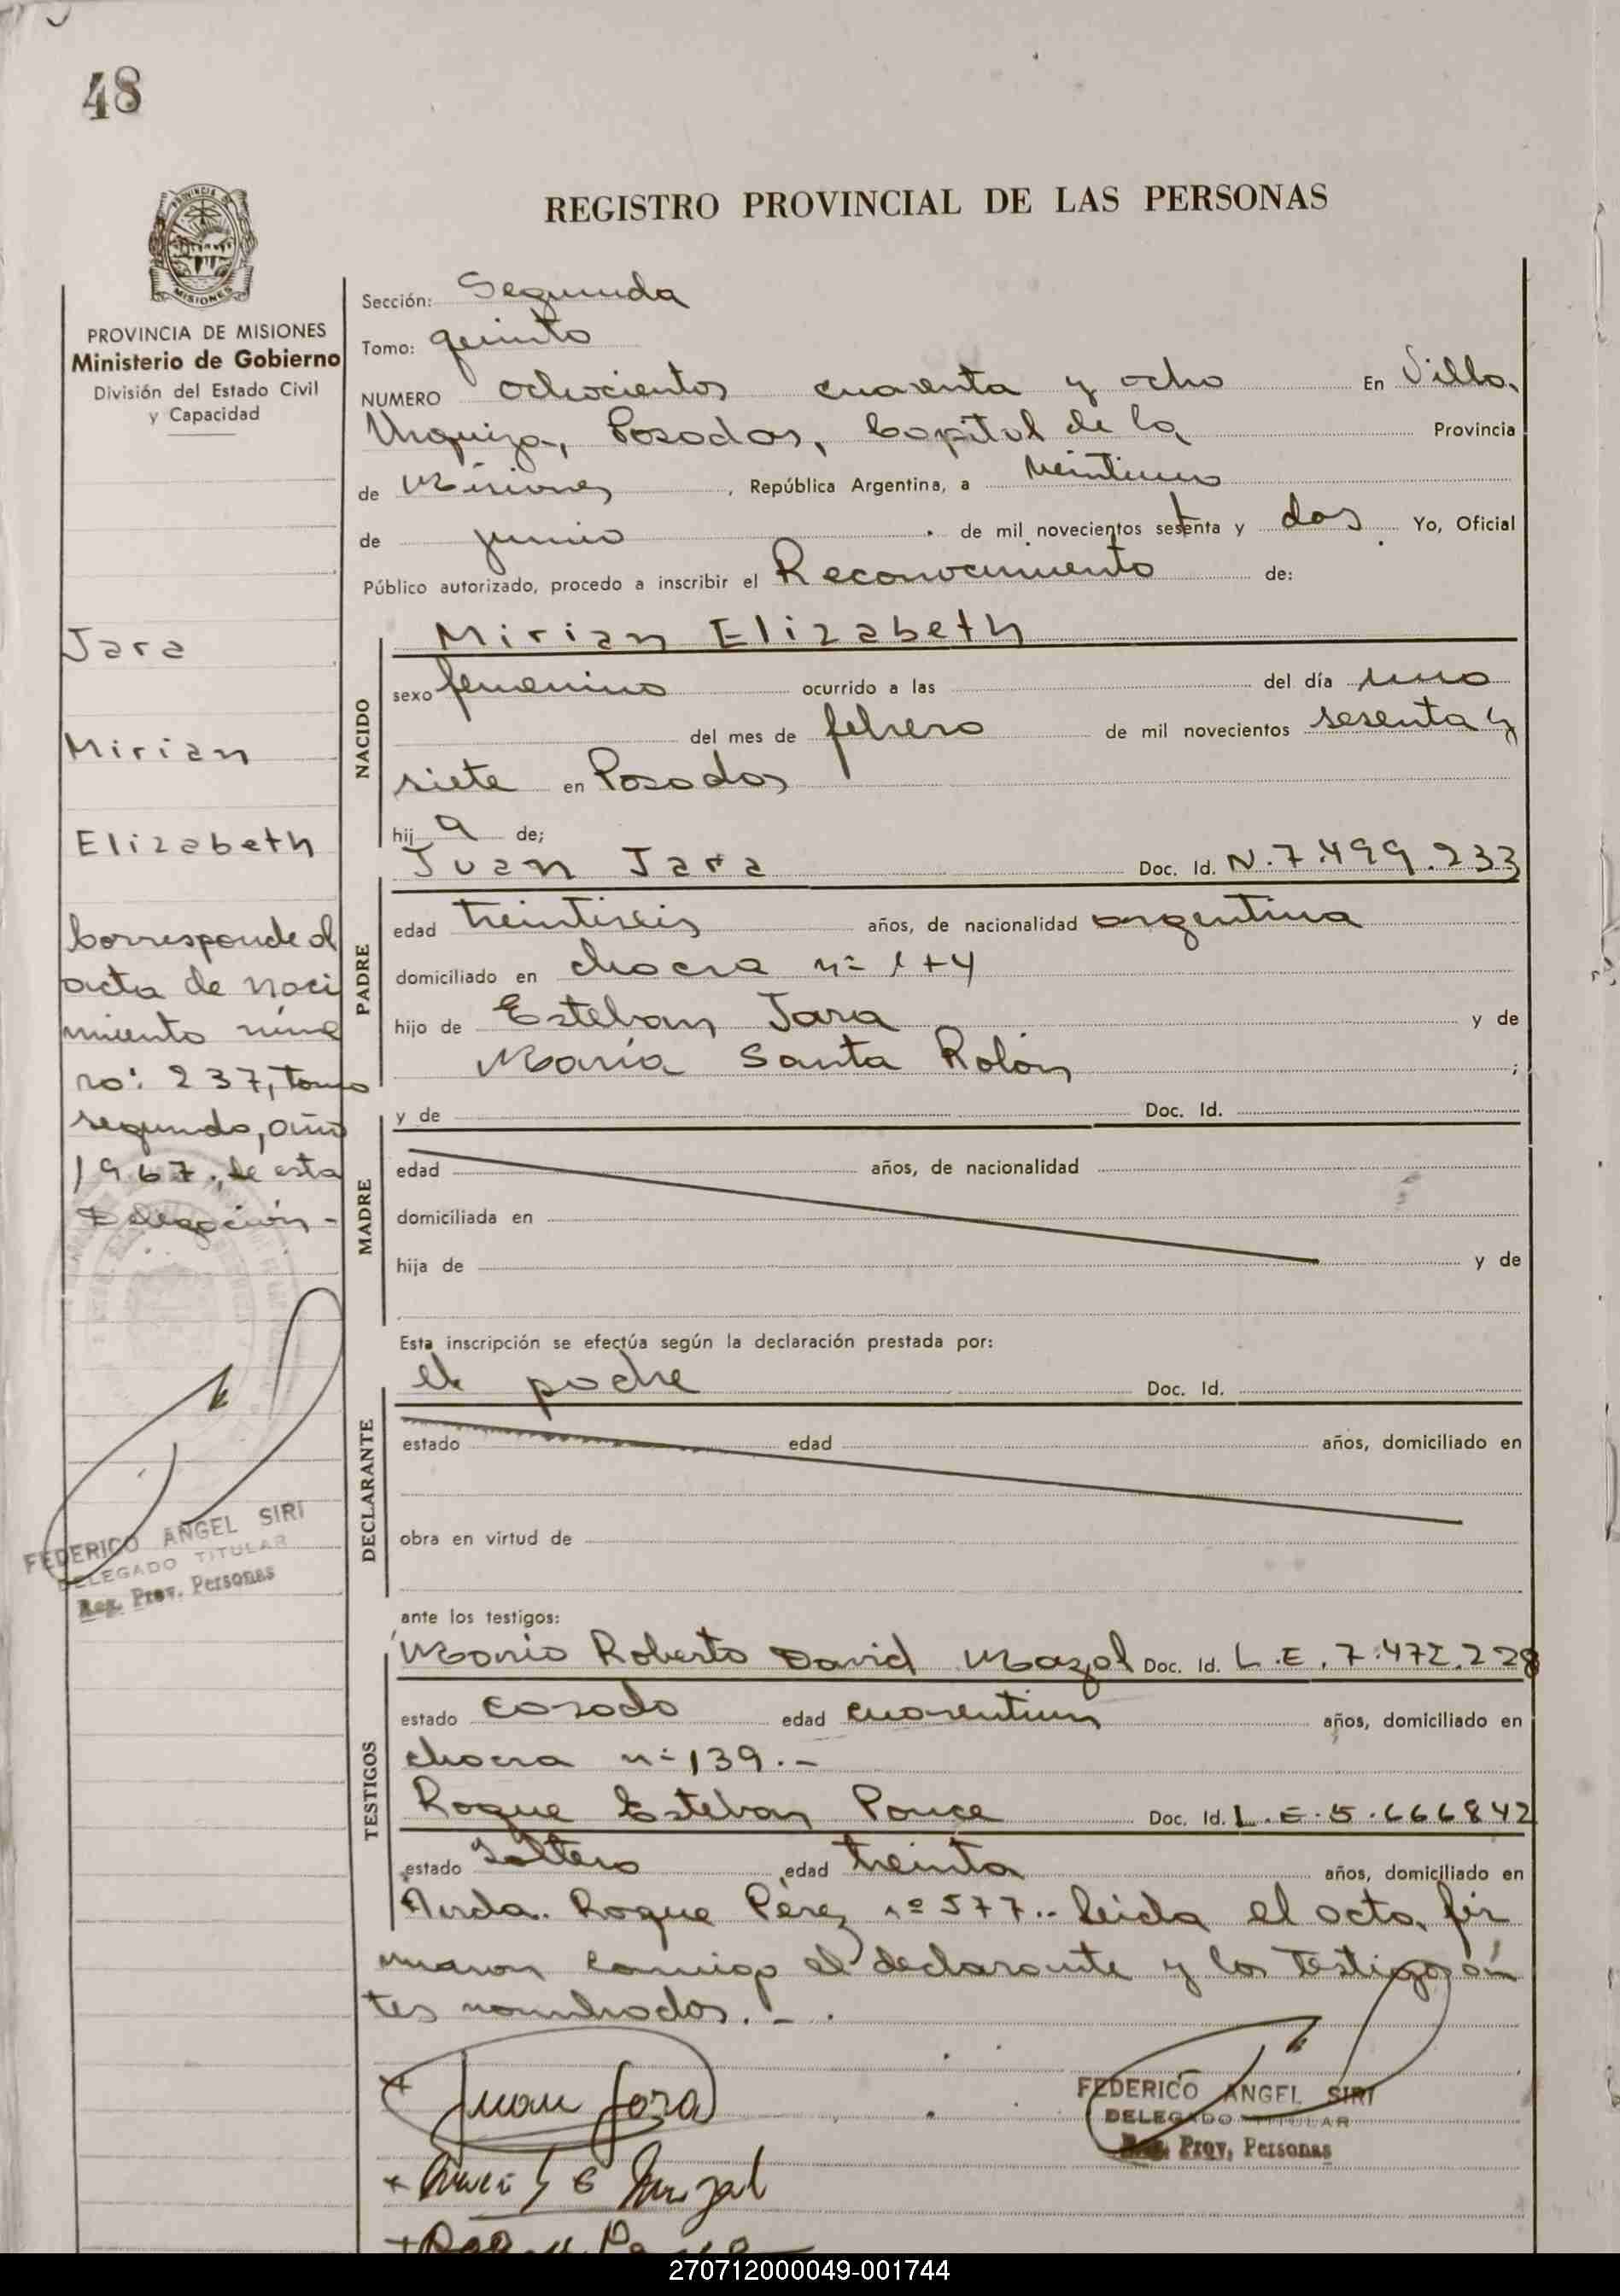 48
REGISTRO PROVINCIAL DE LAS PERSONAS
PROVINCIA DE MISIONES
Ministerio de Gobierno
División del Estado Civil
y Capacidad
Jara
Mirian
Elizabeth
Corresponde al
acta de naci
miento núme
ro: 237, tomo
segundo, año
1967, de esta
Delegación -
FEDERICO ANGEL SIRI
DELEGADO TITULAR
Reg. Prov. Personas
Sección: Segunda
Tomo: quinto
NUMERO ochocientos cuarenta y ocho En Villa
Urquiza, Posadas, Capital de la Provincia
de Misiones, República Argentina, a veintiuno
de junio de mil novecientos setenta y dos Yo, Oficial
Público autorizado, procedo a inscribir el Reconocimiento de:
NACIDO
Mirian Elizabeth
sexo femenino ocurrido a las del día uno
del mes de febrero de mil novecientos sesenta y
siete en Posadas
hij a de;
PADRE
Juan Jara Doc. Id. N. 7.499.233
edad treintiseis años, de nacionalidad argentina
domiciliado en chacra nº 144
hijo de Esteban Jara y de
María Santa Rolón ;
MADRE
y de Doc. Id.
edad años, de nacionalidad
domiciliada en
hija de y de
Esta inscripción se efectúa según la declaración prestada por:
DECLARANTE
el padre Doc. Id.
estado edad años, domiciliado en
obra en virtud de
ante los testigos:
TESTIGOS
Mario Roberto David Mazal Doc. Id. L.E. 7.472.228
estado casado edad cuarentiun años, domiciliado en
chacra nº 139.-
Roque Esteban Ponce Doc. Id. L.E. 5.666842
estado soltero edad treinta años, domiciliado en
Avda. Roque Pérez nº 577.. Leida el acta, fir
maron conmigo el declarante y los testigos an
tes nombrados. - .
Juan Jara
FEDERICO ANGEL SIRI
DELEGADO TITULAR
Reg. Prov. Personas
270712000049-001744